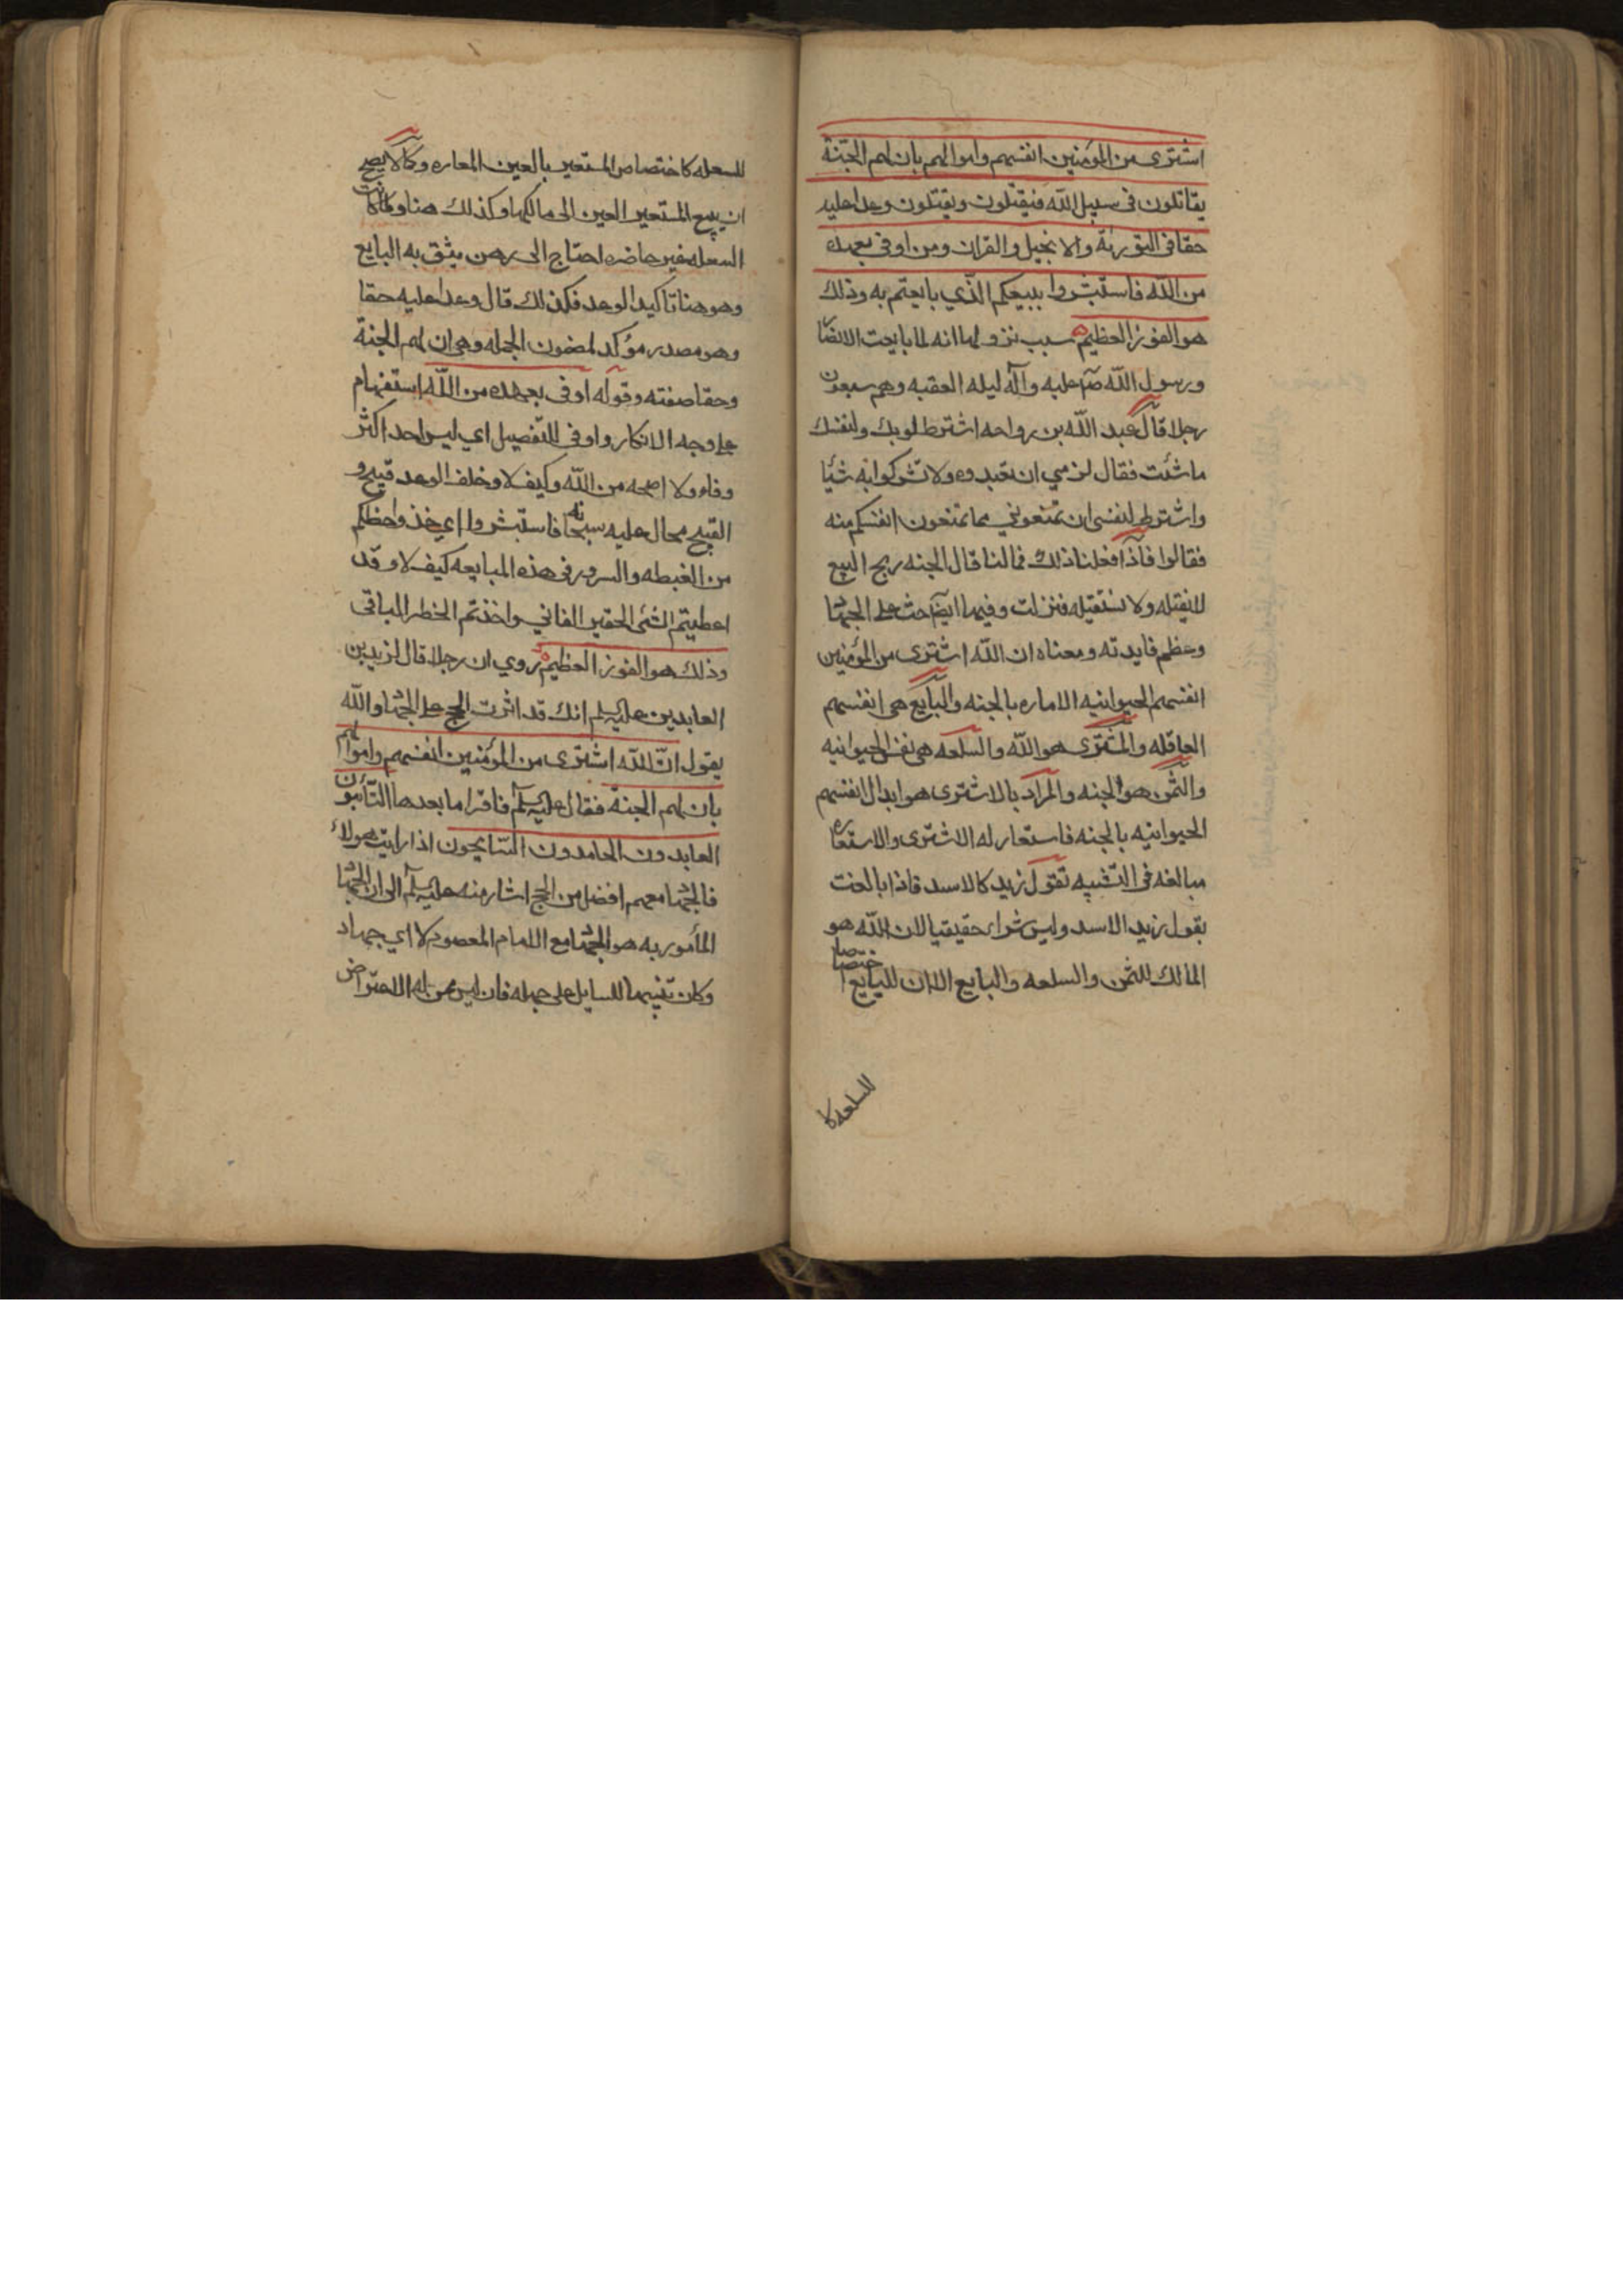 اشترى من المؤمنين انفسهم واموالهم بان لهم الجنة
يقاتلون فى سبيل الله فيقتلون ويقتلون وعدا عليه
حقا فى التورية والانجيل والقران ومن اوفى بعهده
من الله فاستبشروا ببيعكم الذي بايعتم به وذلك
هو الفوز العظيم سبب نزولها انه لما بايعت الانصار
ورسول الله ص عليه وآله ليله العقبه وهم سبعون
رجلا قال عبد الله بن رواحه اشترط لربك ولنفسك
ما شئت فقال لربي ان تعبدوه ولا تشركوا به شيئا
واشترط لنفسى ان تمنعوني مما تمنعون انفسكم منه
فقالوا فاذا فعلنا ذلك فمالنا قال الجنه ربح البيع
لا نقيله ولا نستقيله فنزلت وفيها ايضا حث على الجهاد
وعظم فايدته ومعناه ان الله اشترى من المؤمنين
انفسهم الحيوانيه الاماره بالجنه والبايع هى انفسهم
العاقله والمشترى هو الله والسلعه هى نفس الحيوانيه
والثمن هو الجنه والمراد بالاشترى هو ابدال انفسهم
الحيوانيه بالجنه فاستعار له الاشترى والاستعاره
مبالغه فى التشبيه تقول زيد كالاسد فاذا بالغت
بقول زيد الاسد وليس شراء حقيقيا لان الله هو
المالك للثمن والسلعه والبايع الا ان للبايع اختصاصا
للسلعه كا
للسعله كاختصاص المستعير بالعين المعاره وكما لا يصح
ان يبيع المستعير العين الى مالكها وكذلك هنا ولما كانت
السعله غير حاضره احتاج الى رهن يثق به البايع
وهو هنا تاكيد الوعد فكذلك قال وعدا عليه حقا
وهو مصدر مؤكد لمضمون الجمله وهى ان لهم الجنة
وحقا صفته وقوله اوفى بعهده من الله استفهام
على وجه الانكار واوفى للتفصيل اي ليس احد اكثر
وفاء ولا اصحه من الله وكيف لا وخلف الوعد قبيح و
القبيح محال عليه سبحانه فاستبشروا اي خذوا حظكم
من الغبطه والسرور فى هذه المبايعه كيف لا وقد
اعطيتم الشئ الحقير الفاني واخذتم الخطر الباقى
وذلك هو الفوز العظيم روي ان رجلا قال لزيدين
العابدين عليه السلم انك قد اثرت الحج على الجهاد والله
يقول ان الله اشترى من المؤمنين انفسهم واموالهم
بان لهم الجنة فقال عليه السلم فاقرا ما بعدها التائبون
العابدون الحامدون السايحون اذا رايت هولاء
فالجهاد معهم افضل من الحج اشار منه عليه السلم الى ان الجهاد
المأمور به هو الجهاد مع الامام المعصوم لا اي جهاد
وكان تنبيها للسايل على جهله فان ليس ممن له الاعتراض